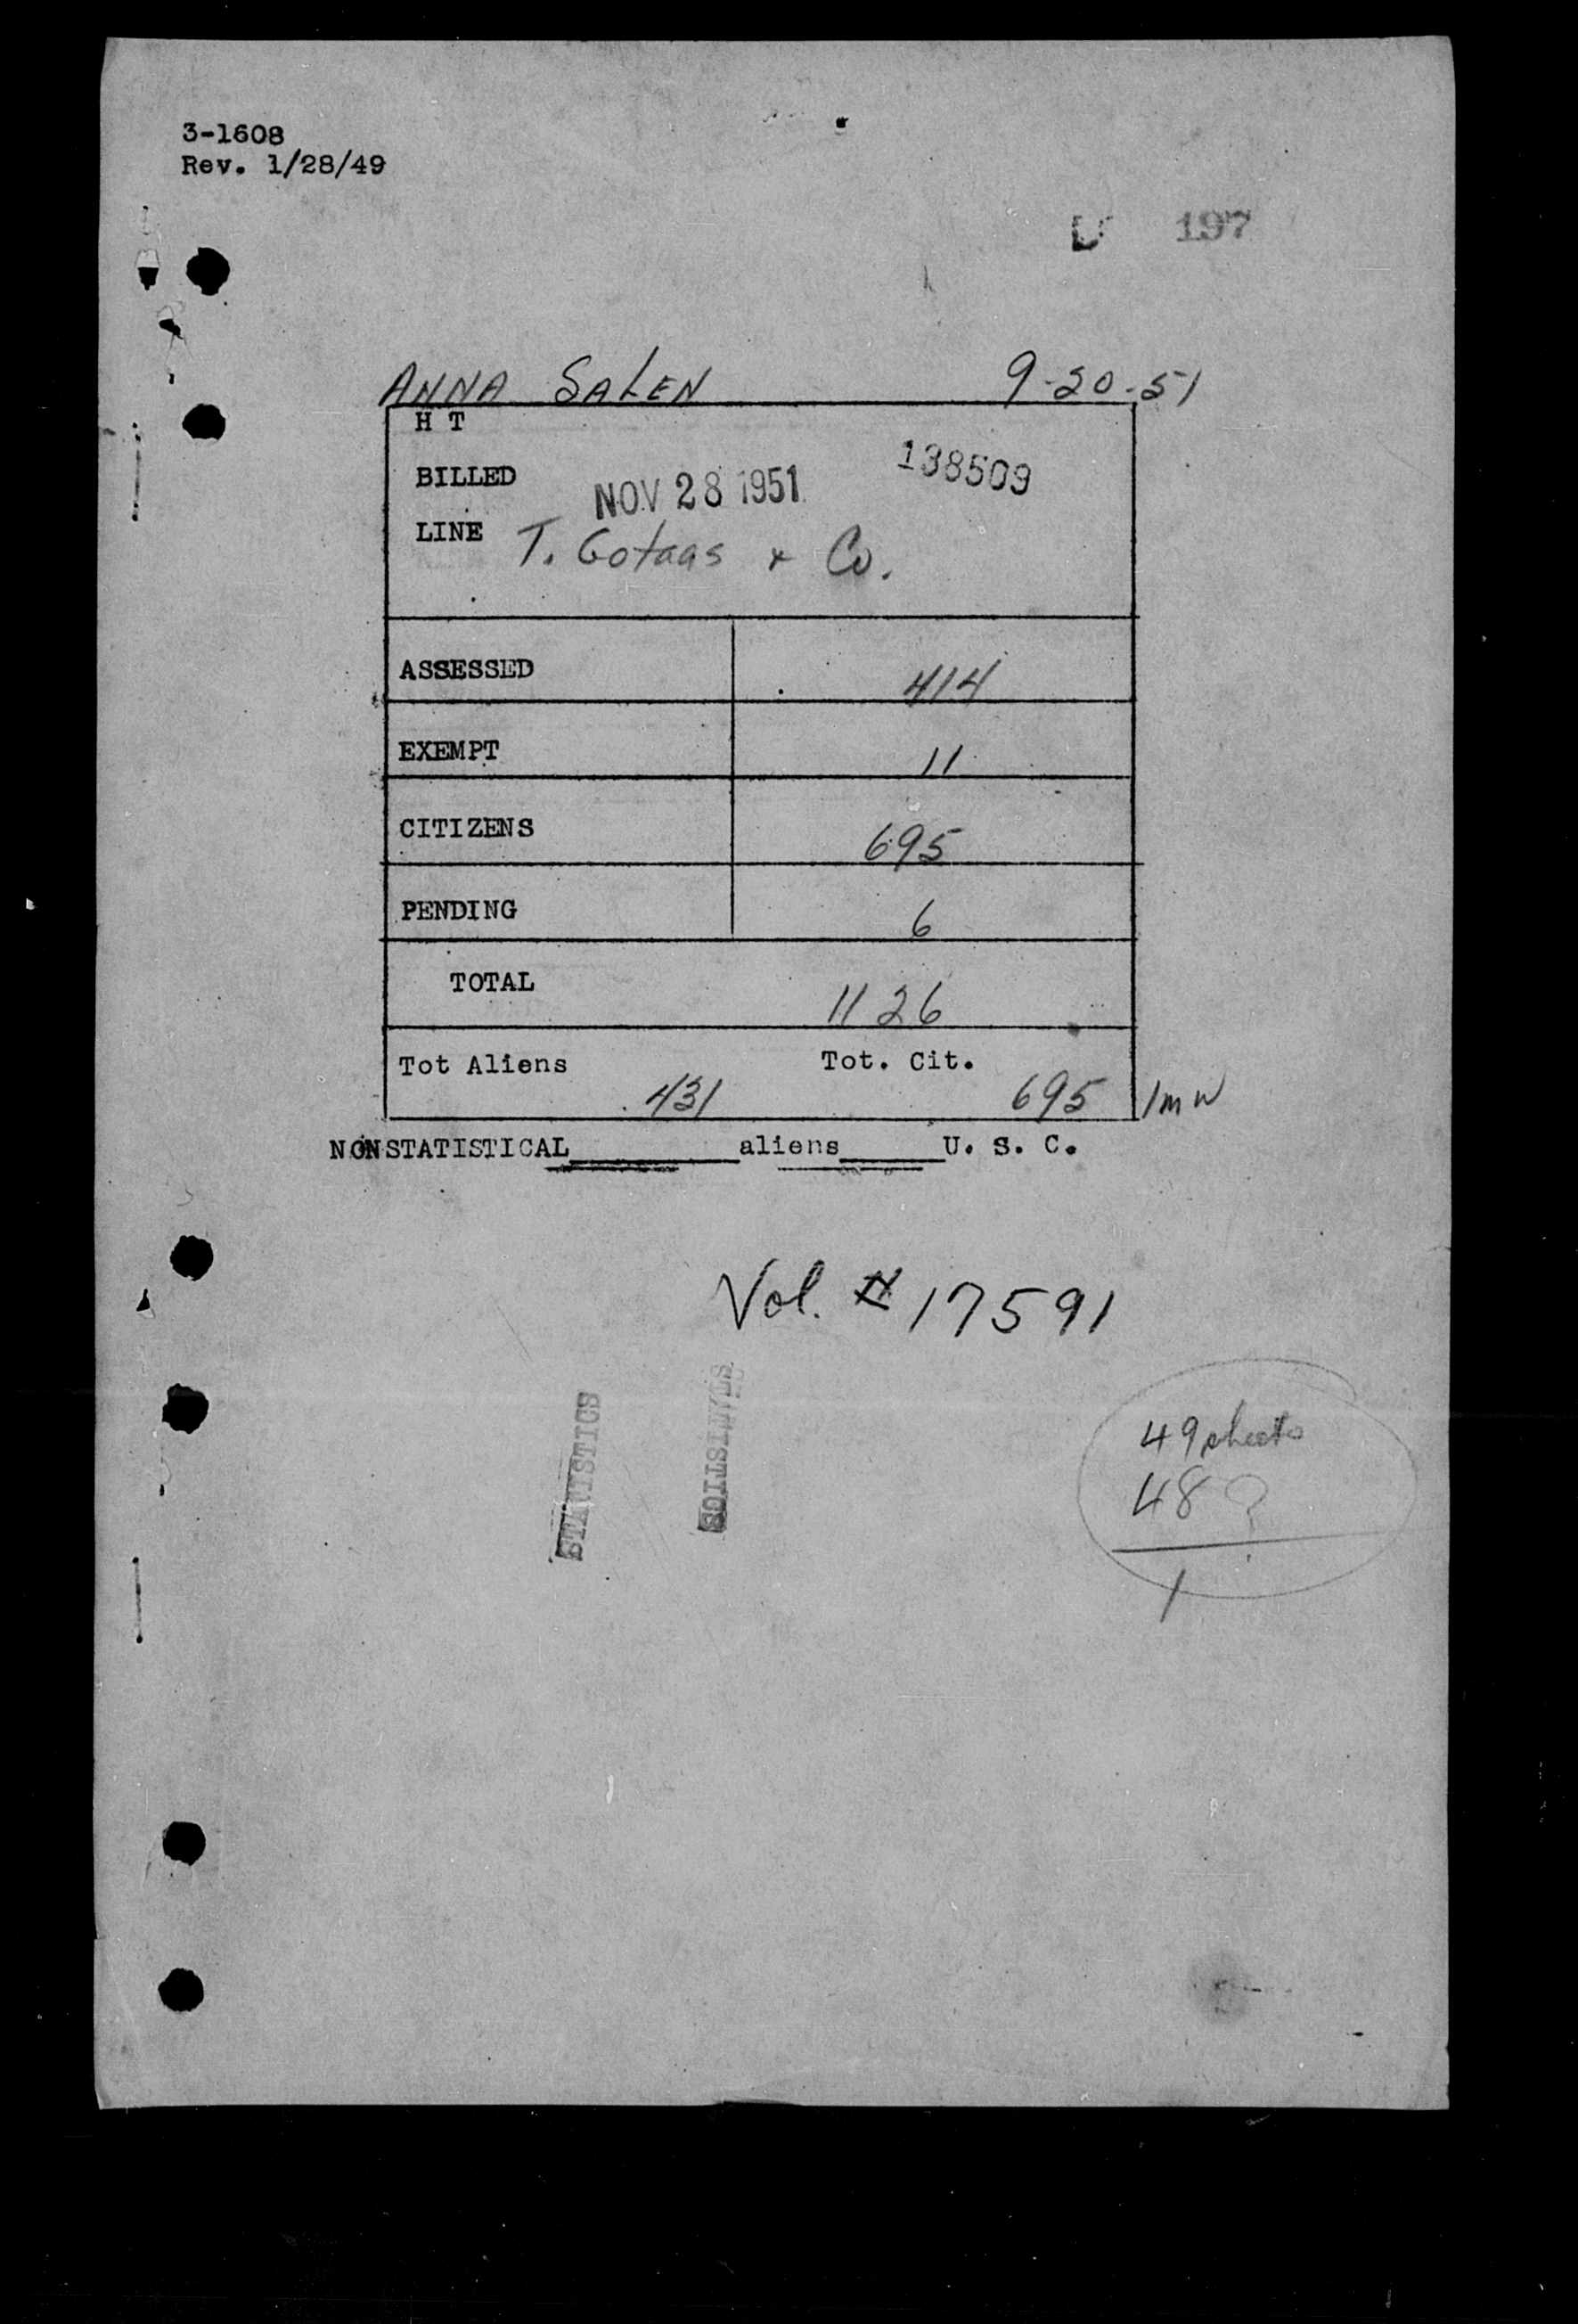 3-1608
Rev. 1/28/49
197
ANNA SALEN 9-20-51
H T
138509
BILLED NOV 28 1951
LINE T. Gotaas & Co.
ASSESSED 414
EXEMPT 11
CITIZENS 695
PENDING 6
TOTAL 1126
Tot Aliens 431 Tot. Cit. 695 1mw
NONSTATISTICAL aliens U. S. C.
Vol. # 17591
STATISTICS
STATISTICS
49 sheets
48 ?
1